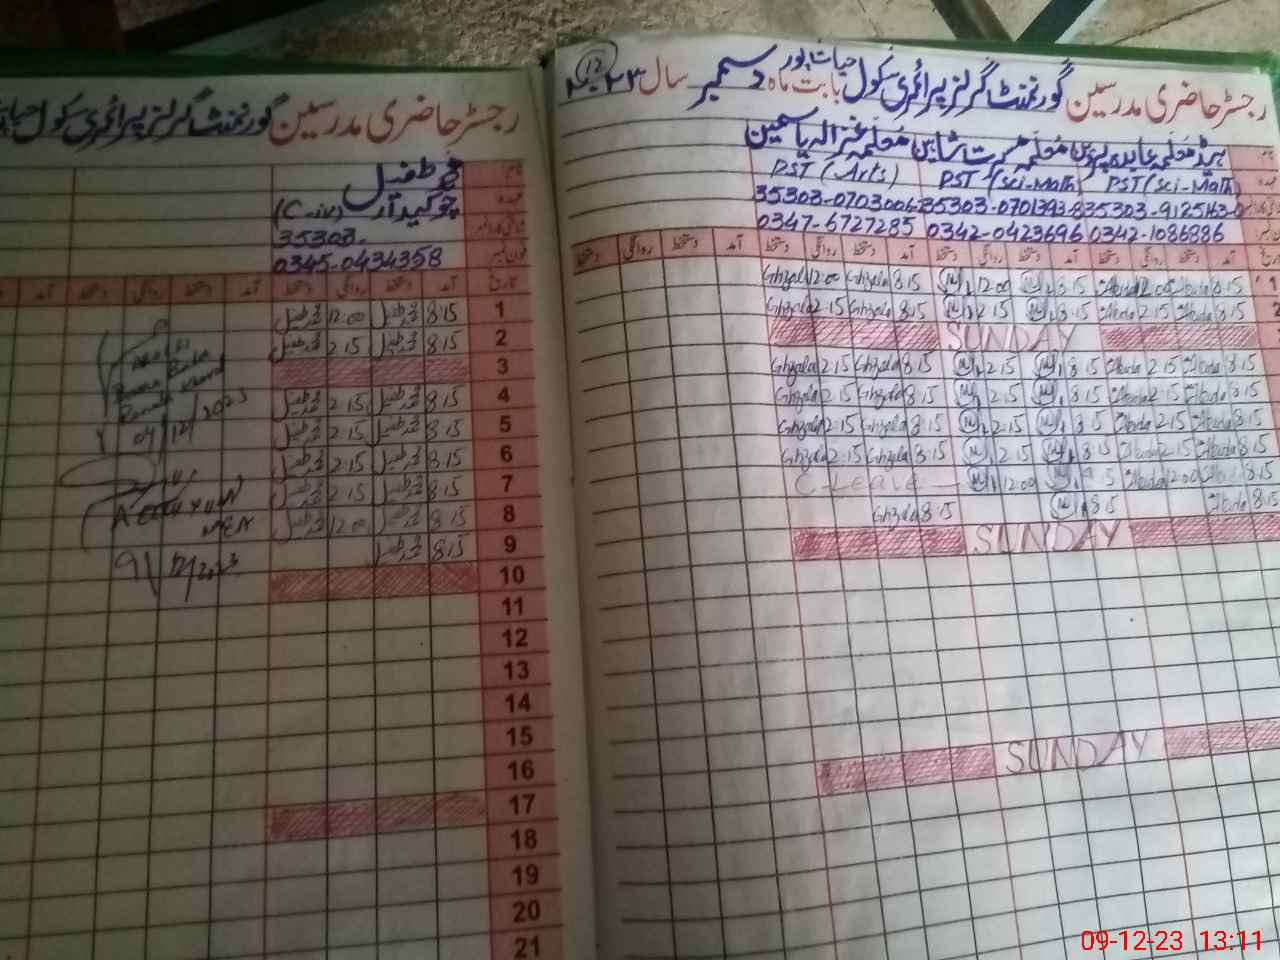 رجسٹر حاضری مدرسین گورنمنٹ گرلز پرائمری سکول حیات پور بابت ماہ دسمبر سال ۲۰۲۳
12
نام ہیڈ معلمہ عابدہ پروین معلمہ مسرت شاہین معلمہ غزالہ یاسمین
عہدہ PST (Sci-Math) PST (Sci-Math) PST (Arts)
35303-9125163- 35303-0701393-8 35303-0703006-
فون نمبر 0342-1086886 0342-0423696 0347-6727285
تاریخ آمد دستخط روانگی دستخط آمد دستخط روانگی دستخط آمد دستخط روانگی دستخط آمد دستخط روانگی دستخط
1 8:15 Abida 12:00 Abida 8:15 12:00 8:15 Ghzala 12:00 Ghzala
2 8:15 Abida 2:15 Abida 8:15 2:15 8:15 Ghzala 2:15 Ghzala
SUNDAY
8:15 Abida 2:15 Abida 8:15 2:15 8:15 Ghzala 2:15 Ghzala
8:15 Abida 2:15 Abida 8:15 2:15 8:15 Ghzala 2:15 Ghzala
8:15 Abida 2:15 Abida 8:15 2:15 8:15 Ghzala 2:15 Ghzala
8:15 Abida 2:15 Abida 8:15 2:15 8:15 Ghzala 2:15 Ghzala
8:15 Abida 12:00 Abida 12:00 C-Leave
8:15 Abida 8:15 8:15 Ghzala
SUNDAY
SUNDAY
رجسٹر حاضری مدرسین گورنمنٹ گرلز پرائمری سکول
نام محمد طفیل
عہدہ چوکیدار (C-iv)
35303-
فون نمبر 0345-0434358
تاریخ آمد دستخط روانگی دستخط آمد دستخط روانگی دستخط آمد
1 8:15 محمد طفیل 12:00 محمد طفیل
2 8:15 محمد طفیل 2:15 محمد طفیل
3
4 8:15 محمد طفیل 2:15 محمد طفیل
5 8:15 محمد طفیل 2:15 محمد طفیل
6 8:15 محمد طفیل 2:15 محمد طفیل
7 8:15 محمد طفیل 2:15 محمد طفیل
8 8:15 محمد طفیل 12:00 محمد طفیل
9 8:15 محمد طفیل
10
11
12
13
14
15
16
17
18
19
20
21
04/12/2023
MEA
9/12/2023
09-12-23 13:11